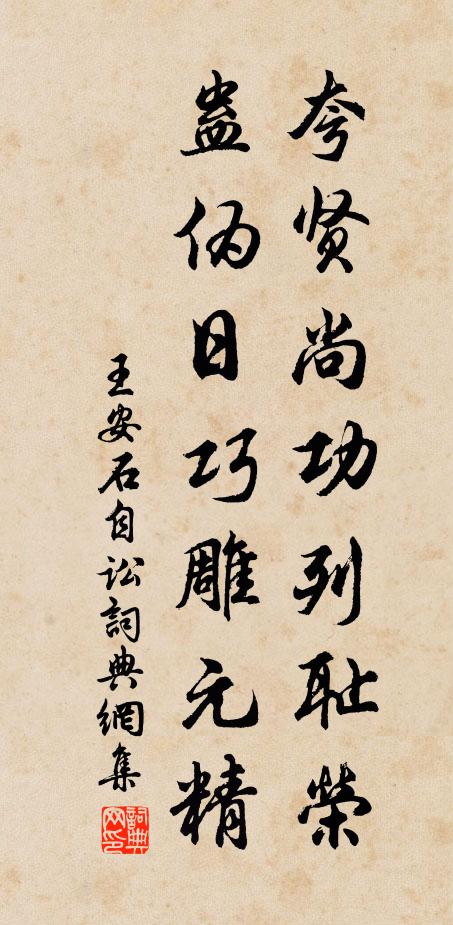 夸贤尚功列耻荣
蛊伪日巧雕元精
王安石自讼詞典網集
詞典网印